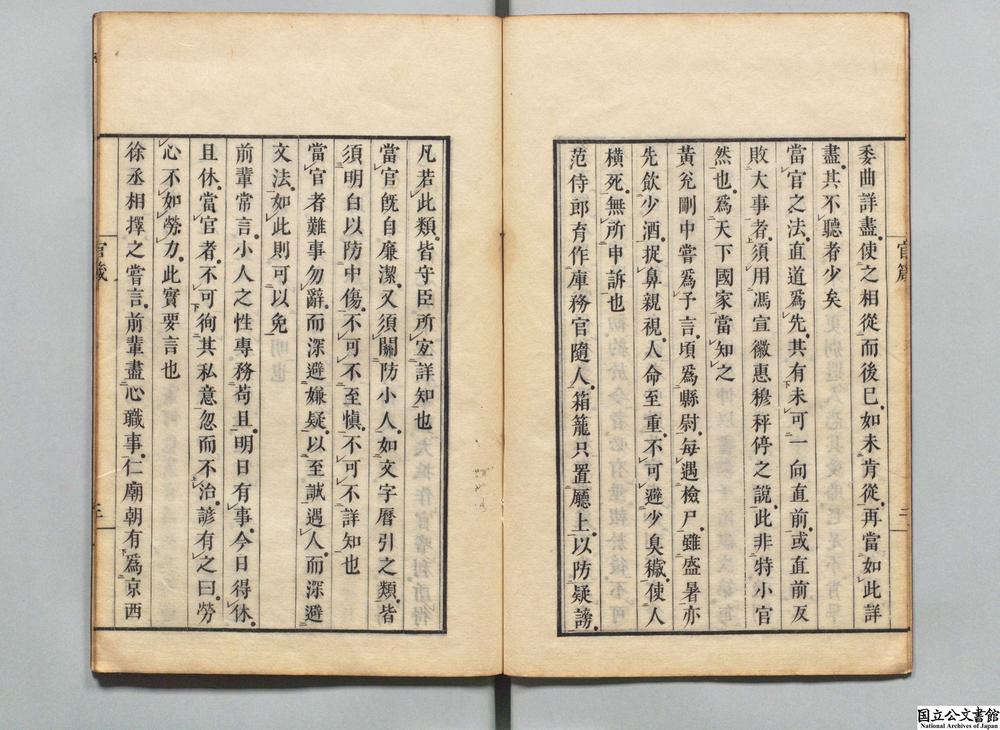 委曲詳盡使之相從而後已如未肯從再當如此詳
盡其不聽者少矣
當官之法直道爲先其有未可一向直前或直前反
敗大事者須用馮宣徽惠穆秤停之說此非特小官
然也爲天下國家當知之
黃兊剛中嘗爲予言頃爲縣尉每遇檢尸雖盛暑亦
先飲少酒捉鼻親視人命至重不可避少臭穢使人
橫死無所申訴也
范侍郎育作庫務官隨人箱籠只置廳上以防疑謗
官箴
二
凡若此類皆守臣所宜詳知也
當官旣自廉潔又須關防小人如文字曆引之類皆
須明白以防中傷不可不至愼不可不詳知也
當官者難事勿辭而深避嫌疑以至誠遇人而深避
文法如此則可以免
前輩常言小人之性專務苟且明日有事今日得休
且休當官者不可徇其私意忽而不治諺有之曰勞
心不如勞力此實要言也
徐丞相擇之嘗言前輩盡心職事仁廟朝有爲京西
官箴
三
国立公文書館
National Archives of Japan